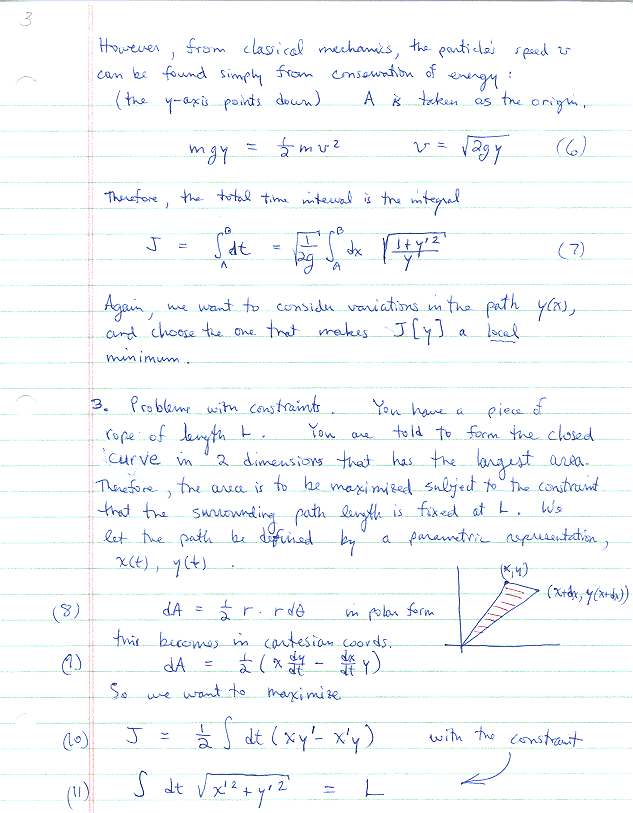 3
However, from classical mechanics, the particle's speed v
can be found simply from conservation of energy:
(the y-axis points down) A is taken as the origin.
mgy = ½ m v² v = √(2gy) (6)
Therefore, the total time interval is the integral
J = ∫_A^B dt = √(1/2g) ∫_A^B dx √((1+y'²)/y) (7)
Again, we want to consider variations in the path y(x),
and choose the one that makes J[y] a local
minimum.
3. Problems with constraints. You have a piece of
rope of length L. You are told to form the closed
curve in 2 dimensions that has the largest area.
Therefore, the area is to be maximized subject to the constraint
that the surrounding path length is fixed at L. We
let the path be defined by a parametric representation,
x(t), y(t).
(x,y)
(x+dx, y(x+dx))
(8) dA = ½ r · r dθ in polar form
this becomes in cartesian coords.
(9) dA = ½ (x dy/dt - dx/dt y)
So we want to maximize
(10) J = ½ ∫ dt (xy' - x'y) with the constraint
(11) ∫ dt √(x'² + y'²) = L